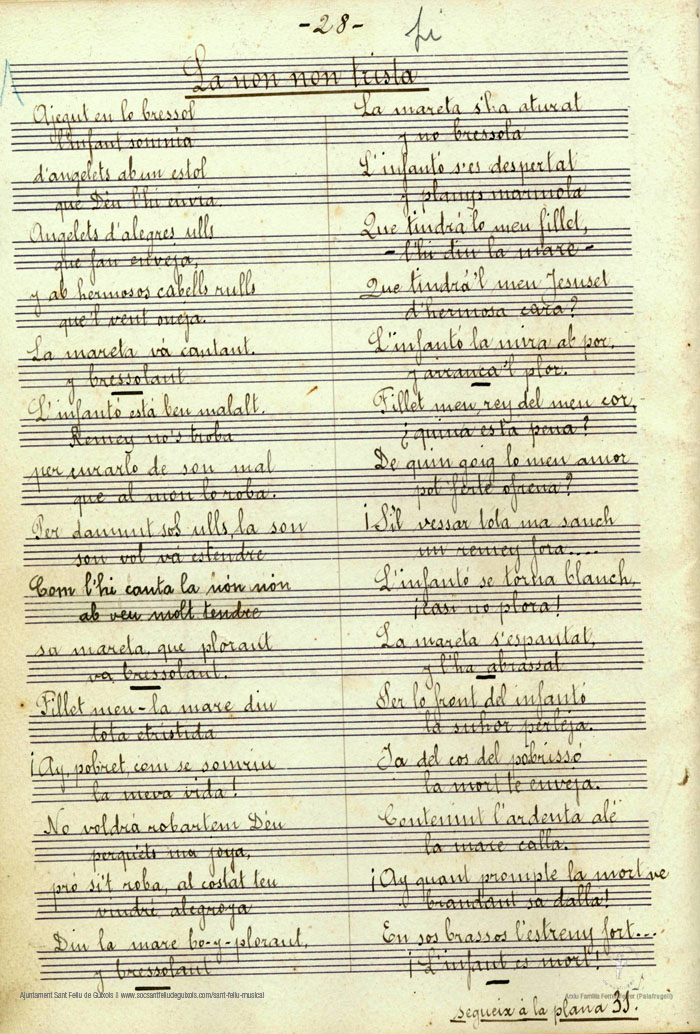 -28-
fi
La non non trista
Ajegut en lo bressol
l'infant somnia
d'angelets ab un estol
que Déu l'hi envia.
Angelets d'alegres ulls
que fan enveja,
y ab hermosos cabells rulls
que'l vent oneja.
La mareta vá cantant.
y bressolant
L'infantó está ben malalt.
Remey no's troba
per curarlo de son mal
que al mon lo roba.
Per damunt sos ulls, la son
son vol va estendre
Com l'hi canta la nón nón
ab veu molt tendre
sa mareta, que plorant
va bressolant.
Fillet meu-la mare diu
tota etristida
¡Ay, pobret, com se somriu
la meva vida!
No voldrá robartem Déu
perquéts ma joya,
pró si't roba, al costat teu
vindré alegroya
Diu la mare bo-y-plorant,
y bressolant
La mareta s'ha aturat
y no bressola
L'infantó s'es despertat
y planys marmola
Que tindrá lo meu fillet,
-l'hi diu la mare-
Que tindrá'l meu Jesuset
d'hermosa cara?
L'infantó la mira ab por,
y arranca'l plor.
Fillet meu, rey del meu cor,
¿quina es ta pena?
De quin goig lo meu amor
pot ferte ofrena?
¡S'il vessar tota ma sanch
un remey fora....
L'infantó se torna blanch,
¡casi no plora!
La mareta s'espantat,
y l'ha abrassat
Per lo front del infantó
la suhor perleja.
Ja del cos del pobrissó
la mort te enveja.
Contenint l'ardenta alé
la mare calla.
¡Ay quant prompte la mort ve
brandant sa dalla!
En sos brassos l'estreny fort...
¡L'infant es mort!
segueix á la plana 35.
Ajuntament Sant Feliu de Guíxols || www.socsantfeliudeguixols.com/sant-feliu-musical
Arxiu Família Ferrer (Palafrugell)